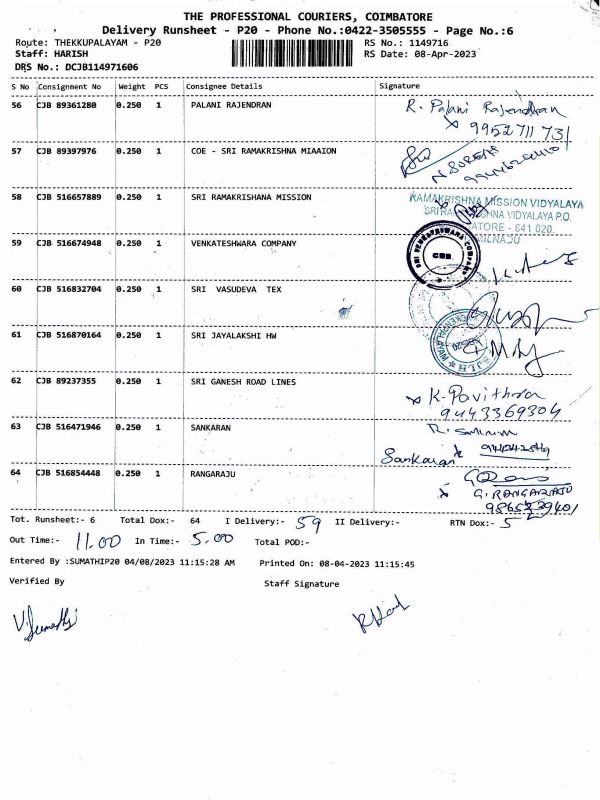 THE PROFESSIONAL COURIERS, COIMBATORE
Delivery Runsheet - P20 - Phone No.:0422-3505555 - Page No.:6
Route: THEKKUPALAYAM - P20 RS No.: 1149716
Staff: HARISH RS Date: 08-Apr-2023
DRS No.: DCJB114971606
S No Consignment No Weight PCS Consignee Details Signature
56 CJB 89361280 0.250 1 PALANI RAJENDRAN R. Palani Rajendran
9952711731
57 CJB 89397976 0.250 1 COE - SRI RAMAKRISHNA MIAAION
58 CJB 516657889 0.250 1 SRI RAMAKRISHANA MISSION RAMAKRISHNA MISSION VIDYALAYA
VIDYALAYA P.O.
641 020
59 CJB 516674948 0.250 1 VENKATESHWARA COMPANY SRI VENKATESHWARA COMPANY
CBE
60 CJB 516832704 0.250 1 SRI VASUDEVA TEX
61 CJB 516870164 0.250 1 SRI JAYALAKSHI HW
62 CJB 89237355 0.250 1 SRI GANESH ROAD LINES K. Pavithra
9443369304
63 CJB 516471946 0.250 1 SANKARAN
Sankaran
64 CJB 516854448 0.250 1 RANGARAJU
G. RANGARAJU
Tot. Runsheet:- 6 Total Dox:- 64 I Delivery:- 59 II Delivery:- RTN Dox:- 5
Out Time:- 11.00 In Time:- 5.00 Total POD:-
Entered By :SUMATHIP20 04/08/2023 11:15:28 AM Printed On: 08-04-2023 11:15:45
Verified By Staff Signature